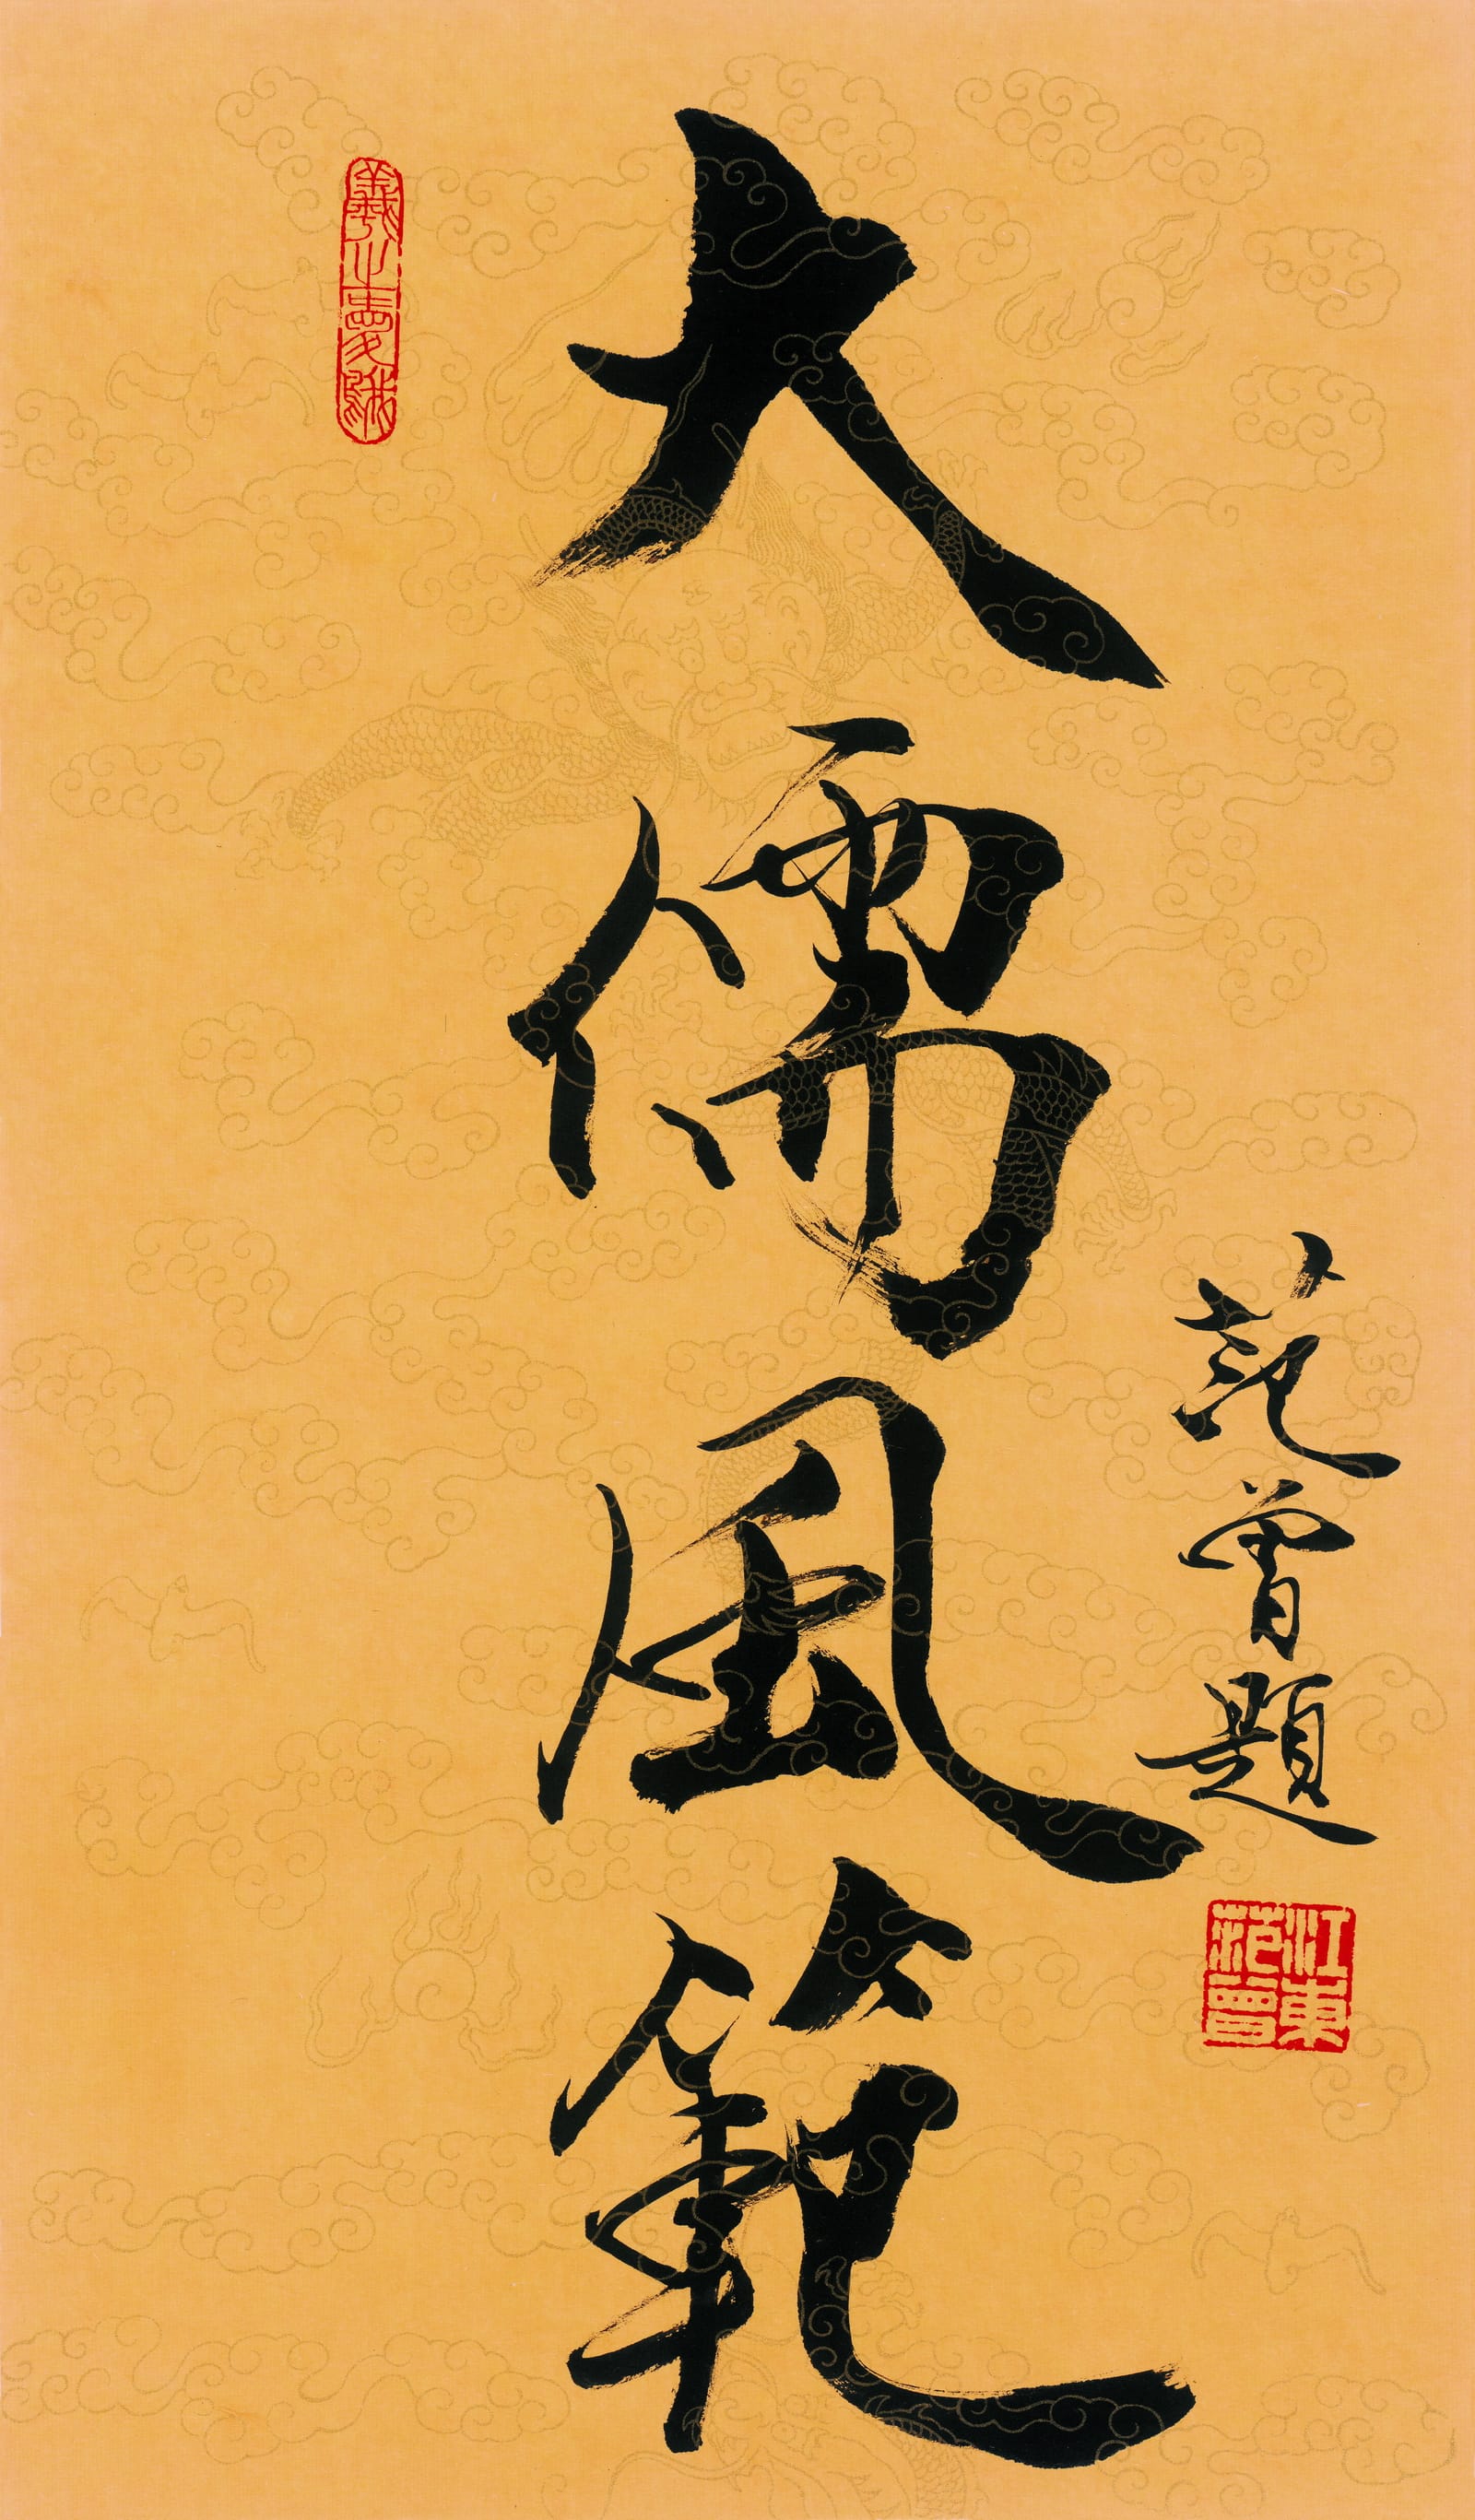 大儒風範
范曾題
江東
范曾